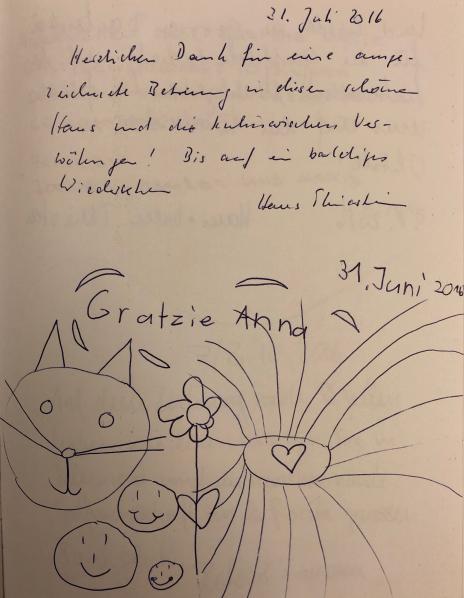 21. Juli 2016
Herzlichen Dank für eine ausge-
zeichnete Betreuung in diesem schönen
Haus und die kulinarischen Ver-
wöhungen! Bis auf ein baldiges
Wiedersehen
Hans
31. Juni 2016
Gratzie Anna